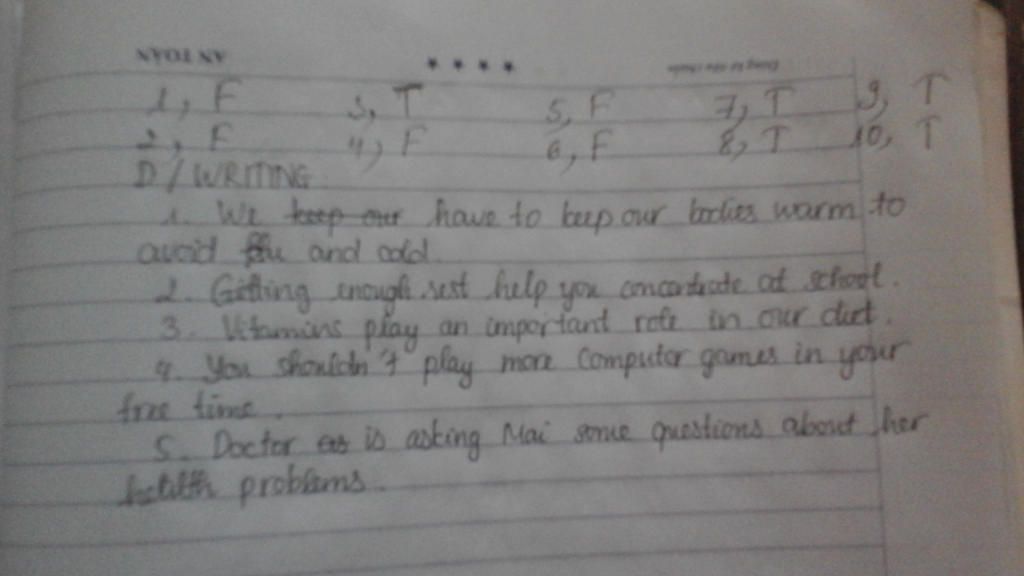 AN TOÀN ★ ★ ★ ★
1, F 3, T 5, F 7, T 9, T
2, F 4, F 6, F 8, T 10, T
D / WRITING
1. We keep our have to keep our bodies warm to
avoid flu and cold.
2. Getting enough rest help you concentrate at school.
3. Vitamins play an important role in our diet.
4. You shouldn't play more computer games in your
free time.
5. Doctor is asking Mai some questions about her
health problems.